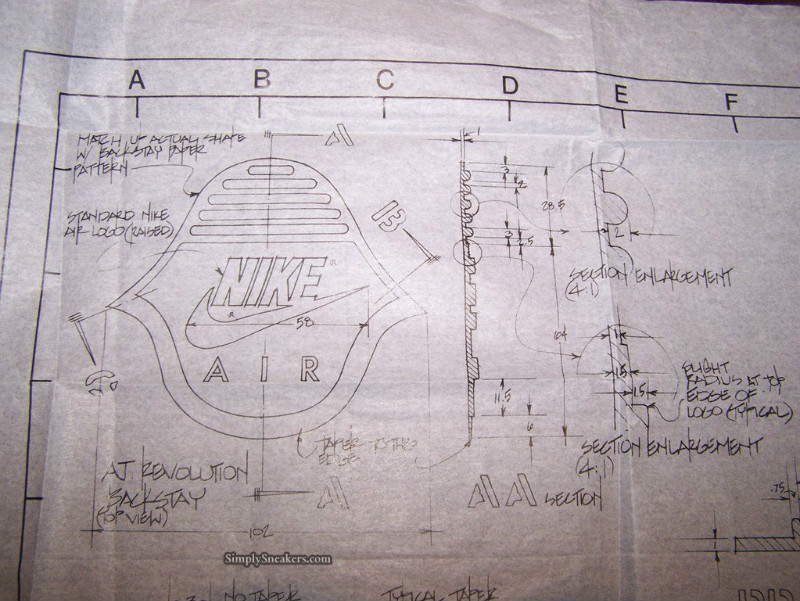 A B C D E F
MATCH UP ACTUAL SHAPE
W/ BACKSTAY PAPER
PATTERN
A
1
3
2
28.5
3
2.5
STANDARD NIKE
AIR LOGO (RAISED)
B
2
SECTION ENLARGEMENT
(4:1)
NIKE
58
AIR
64
1
1.5
1.5
SLIGHT
RADIUS AT TOP
EDGE OF
LOGO (TYPICAL)
11.5
6
C
TAPER TO THIS
EDGE
SECTION ENLARGEMENT
(4:1)
AJ REVOLUTION
BACKSTAY
(TOP VIEW)
A
AA SECTION
102
.75
1
SimplySneakers.com
NO TAPER
TYPICAL TAPER